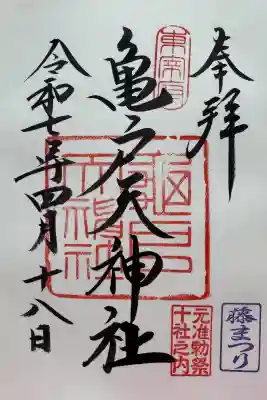 奉拝
東宰府
亀戸天神社
亀戸天神社
令和七年四月十八日
元准勅祭
十社之内
藤まつり